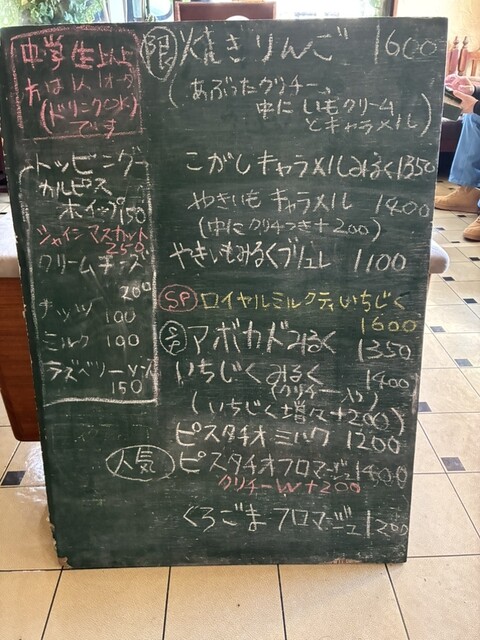 中学生以上
方は1人1オーダー
(ドリンクOK)
です
トッピング
カルピス
ホイップ150
シャインマスカット
250
クリームチーズ
200
ナッツ 100
ミルク 100
ラズベリー
150
限 焼きりんご 1600
(あぶったクリチー、
中にいもクリーム
とキャラメル)
こがしキャラメルみるく1350
やきいもキャラメル 1400
(中にクリチつき+200)
やきいもみるくブリュレ 1100
SP ロイヤルミルクティいちじく
1600
アボカドみるく 1350
いちじくみるく 1400
(クリチー入り)
(いちじく増々+200)
ピスタチオミルク 1200
人気 ピスタチオフロマージュ1400
クリチーW+200
くろごまフロマージュ1200